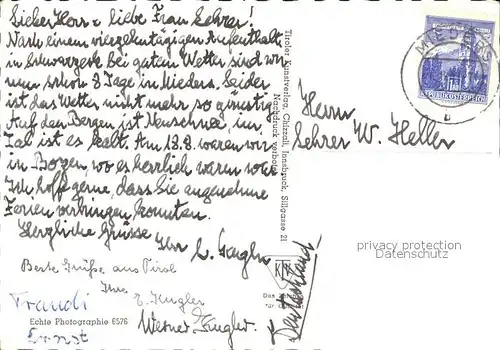 Lieber Herr & liebe Frau Lehrer!
Nach einem vierzehntägigen Aufenthalt
in Schwarzsee bei gutem Wetter sind wir
nun schon 8 Tage in Mieders. Leider
ist das Wetter nicht mehr so günstig.
Auf den Bergen ist Neuschnee, im
Tal ist es kalt. Am 18.8. waren wir
in Bozen, wo es herrlich warm war.
Ich hoffe gerne, dass Sie angenehme
Ferien verbringen konnten.
Herzliche Grüsse
Ihr
Beste Grüße aus Tirol
Ihre
Traudi
Ernst
Werner
Echte Photographie 6576
Tiroler Kunstverlag Chizzali, Innsbruck, Sillgasse 21
Nachdruck verboten
Das
für
MIEDERS
b
REPUBLIK ÖSTERREICH
Herrn
Lehrer W. Heller
Deutschland
privacy protection
Datenschutz